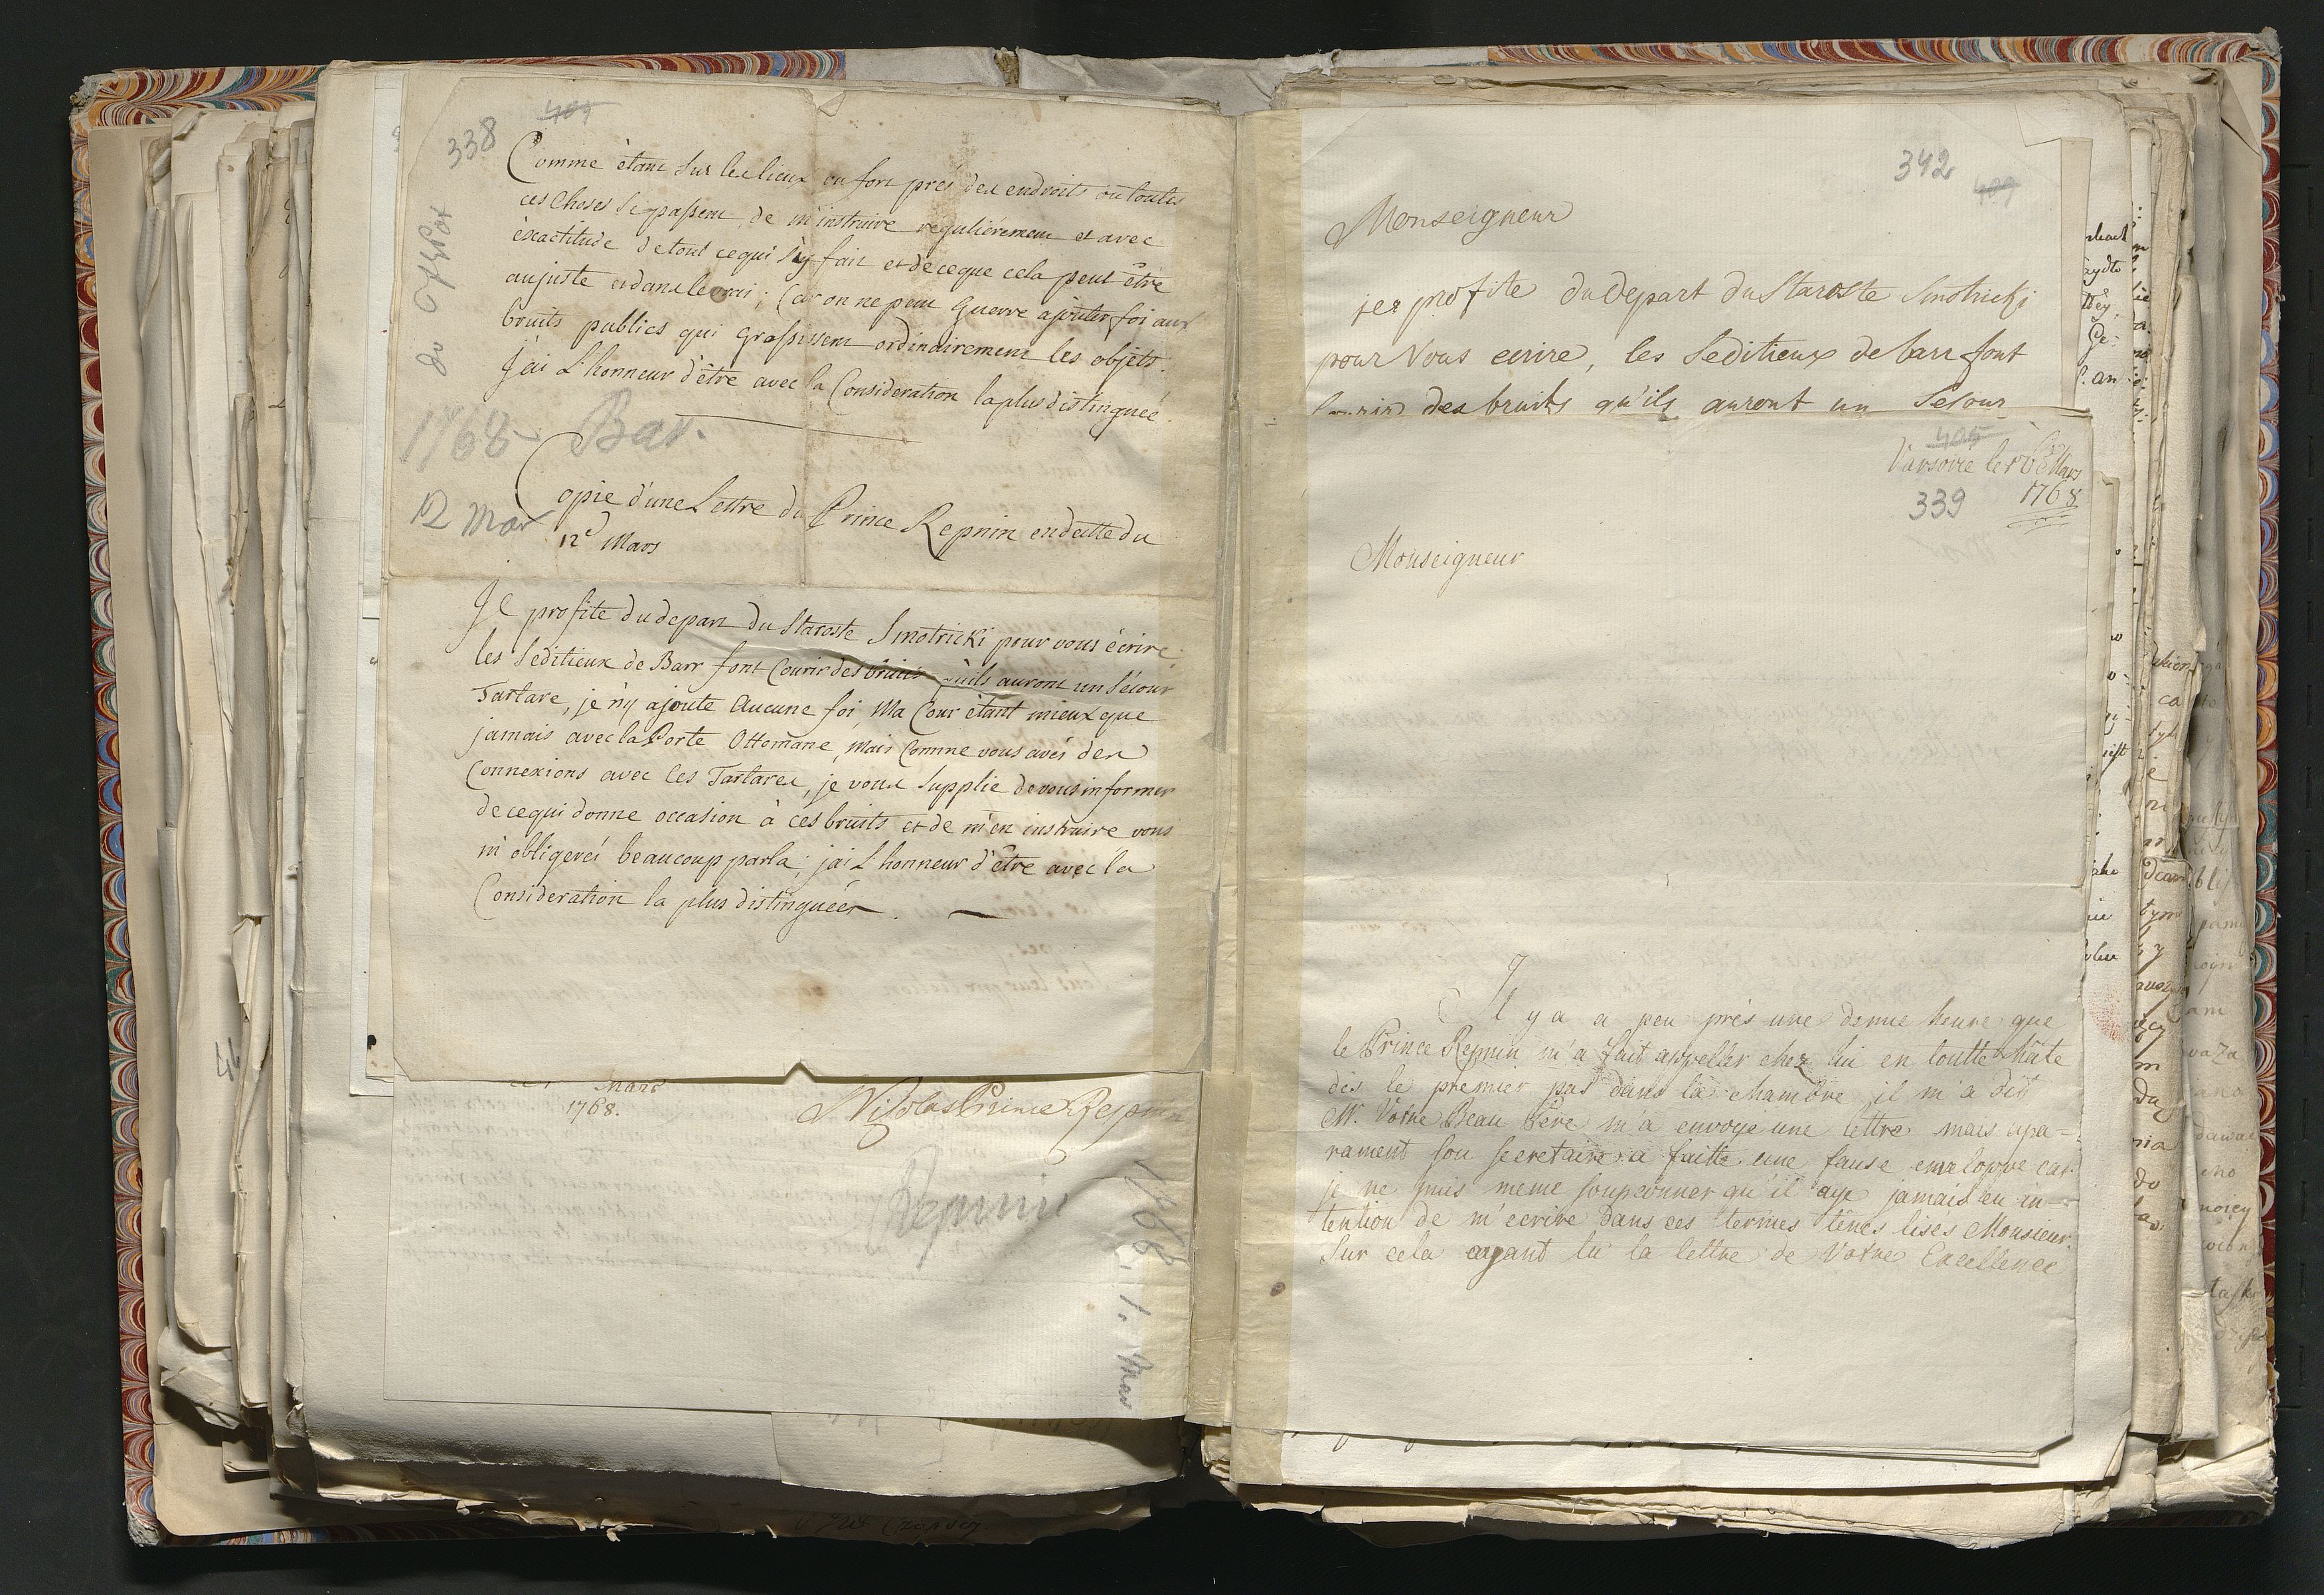 338
Comme êtant sur les lieux ou fort près des endroits ou toutes
ces choses se passent, de m'instruire regulièrement et avec
éxactitude de tout ce qui s'y fait et de ce que cela peut être
au juste et dans le vrai; Car on ne peut Guerre ajouter foi aux
bruits publics qui Grossissent ordinairement les objets.
J'ai L'honneur d'être avec la Consideration la plus distinguée.
1768 Bar.
12 Mar
Copie d'une Lettre du Prince Repnin en datte du
12e Mars
Je profite du depart du Staroste Smotricki pour vous écrire;
les Seditieux de Barr font Courir des bruits qu'ils auront un Sécour
Tartare, je n'y ajoute Aucune foi, Ma Cour êtant mieux que
jamais avec la Porte Ottomane, Mais Comme vous avés des
Connexions avec les Tartares, je vous Supplie de vous informer
de ce qui donne occasion à ces bruits et de m'en instruire vous
m'obligerés beaucoup par la; j'ai L'honneur d'être avec la
Consideration la plus distinguées.
Mars
1768.
Nicolas Prince Repnin
Repnin
1768
1. Mar
342
409
Monseigneur
je profite du depart du Staroste Smotricki
pour Vous ecrire, les Seditieux de barr font
courir des bruits qu'ils auront un Secour
405
Varsovie le Mars
1768
339
Monseigneur
Il y a a peu près une demie heure que
le Prince Repnin m'a fait appeller chez lui en toutte hâte
dès le premier pas dans la chambre il m'a dit
Mr. Votre Beau Père m'a envoyé une lettre mais apa-
rament son secretaire a faitte une fause enveloppe car
je ne puis meme soupconner qu'il aye jamais eu in-
tention de m'ecrire dans ces termes tenés lisés Monsieur.
Sur cela ayant lu la lettre de Votre Excellence